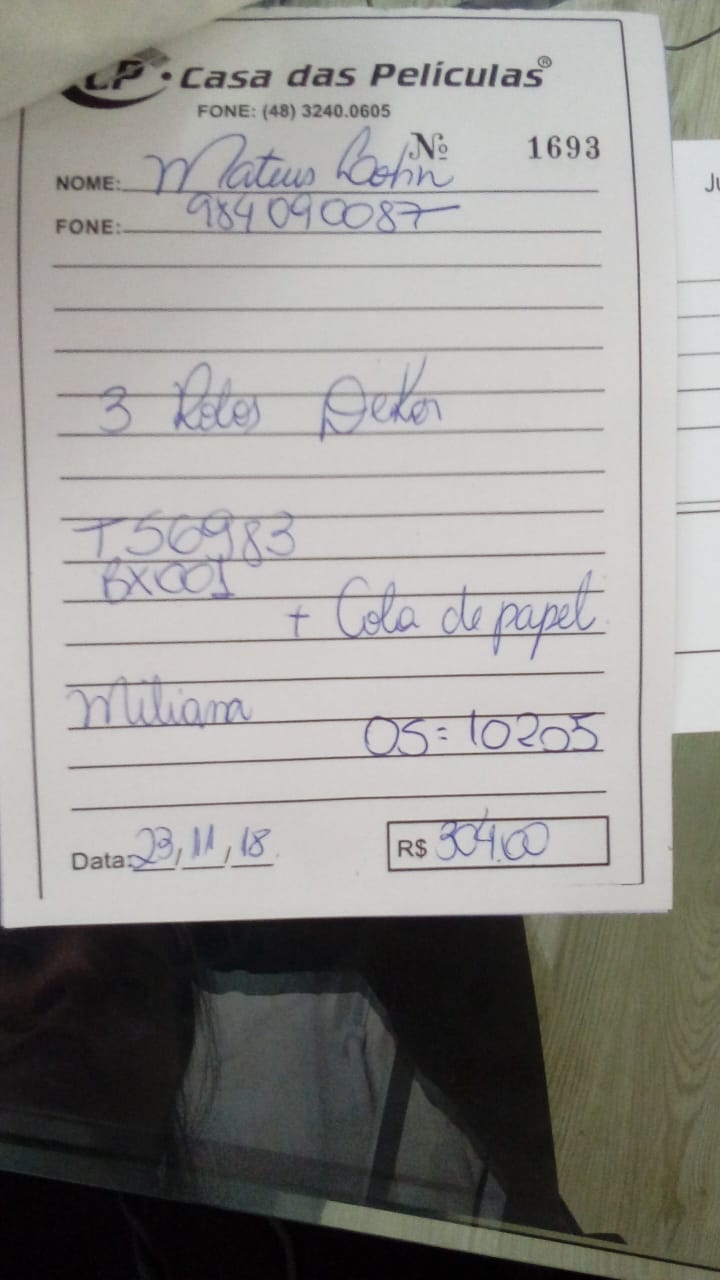 CP • Casa das Películas®
FONE: (48) 3240.0605
Nº 1693
NOME: Mateus Bohn
FONE: 984090087
3 Rolos Dekor
T56983
BX001
+ Cola de papel
Miliana
OS: 10205
Data: 23, 11, 18
R$ 304.00
Ju